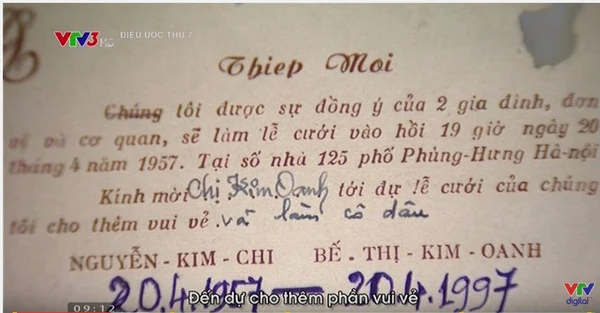 VTV3 HD ĐIỀU ƯỚC THỨ 7
Thiep Moi
Chúng tôi được sự đồng ý của 2 gia đình, đơn
vị và cơ quan, sẽ làm lễ cưới vào hồi 19 giờ ngày 20
tháng 4 năm 1957. Tại số nhà 125 phố Phùng-Hưng Hà-nội
Kính mời Chị Kim Oanh tới dự lễ cưới của chúng
tôi cho thêm vui vẻ. và làm cô dâu
NGUYỄN - KIM - CHI BẾ - THỊ - KIM - OANH
20.4.1957 — 20.4.1997
Đến dự cho thêm phần vui vẻ
09:12
VTV digital